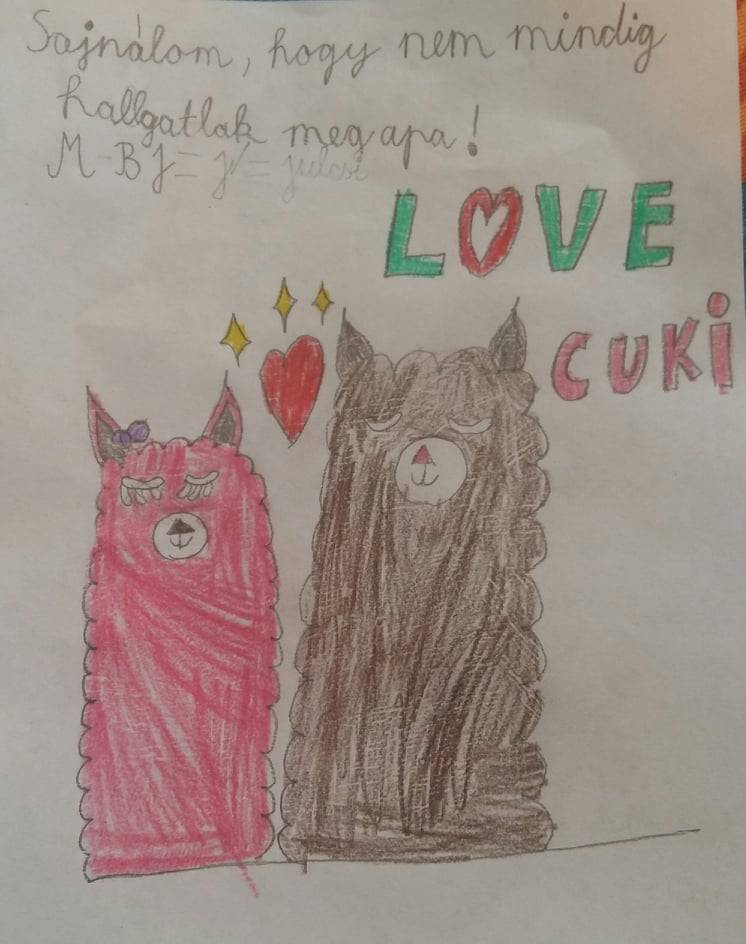 Sajnálom, hogy nem mindig
hallgatlak meg apa!
M-BJ= = julcsi
LOVE
CUKI